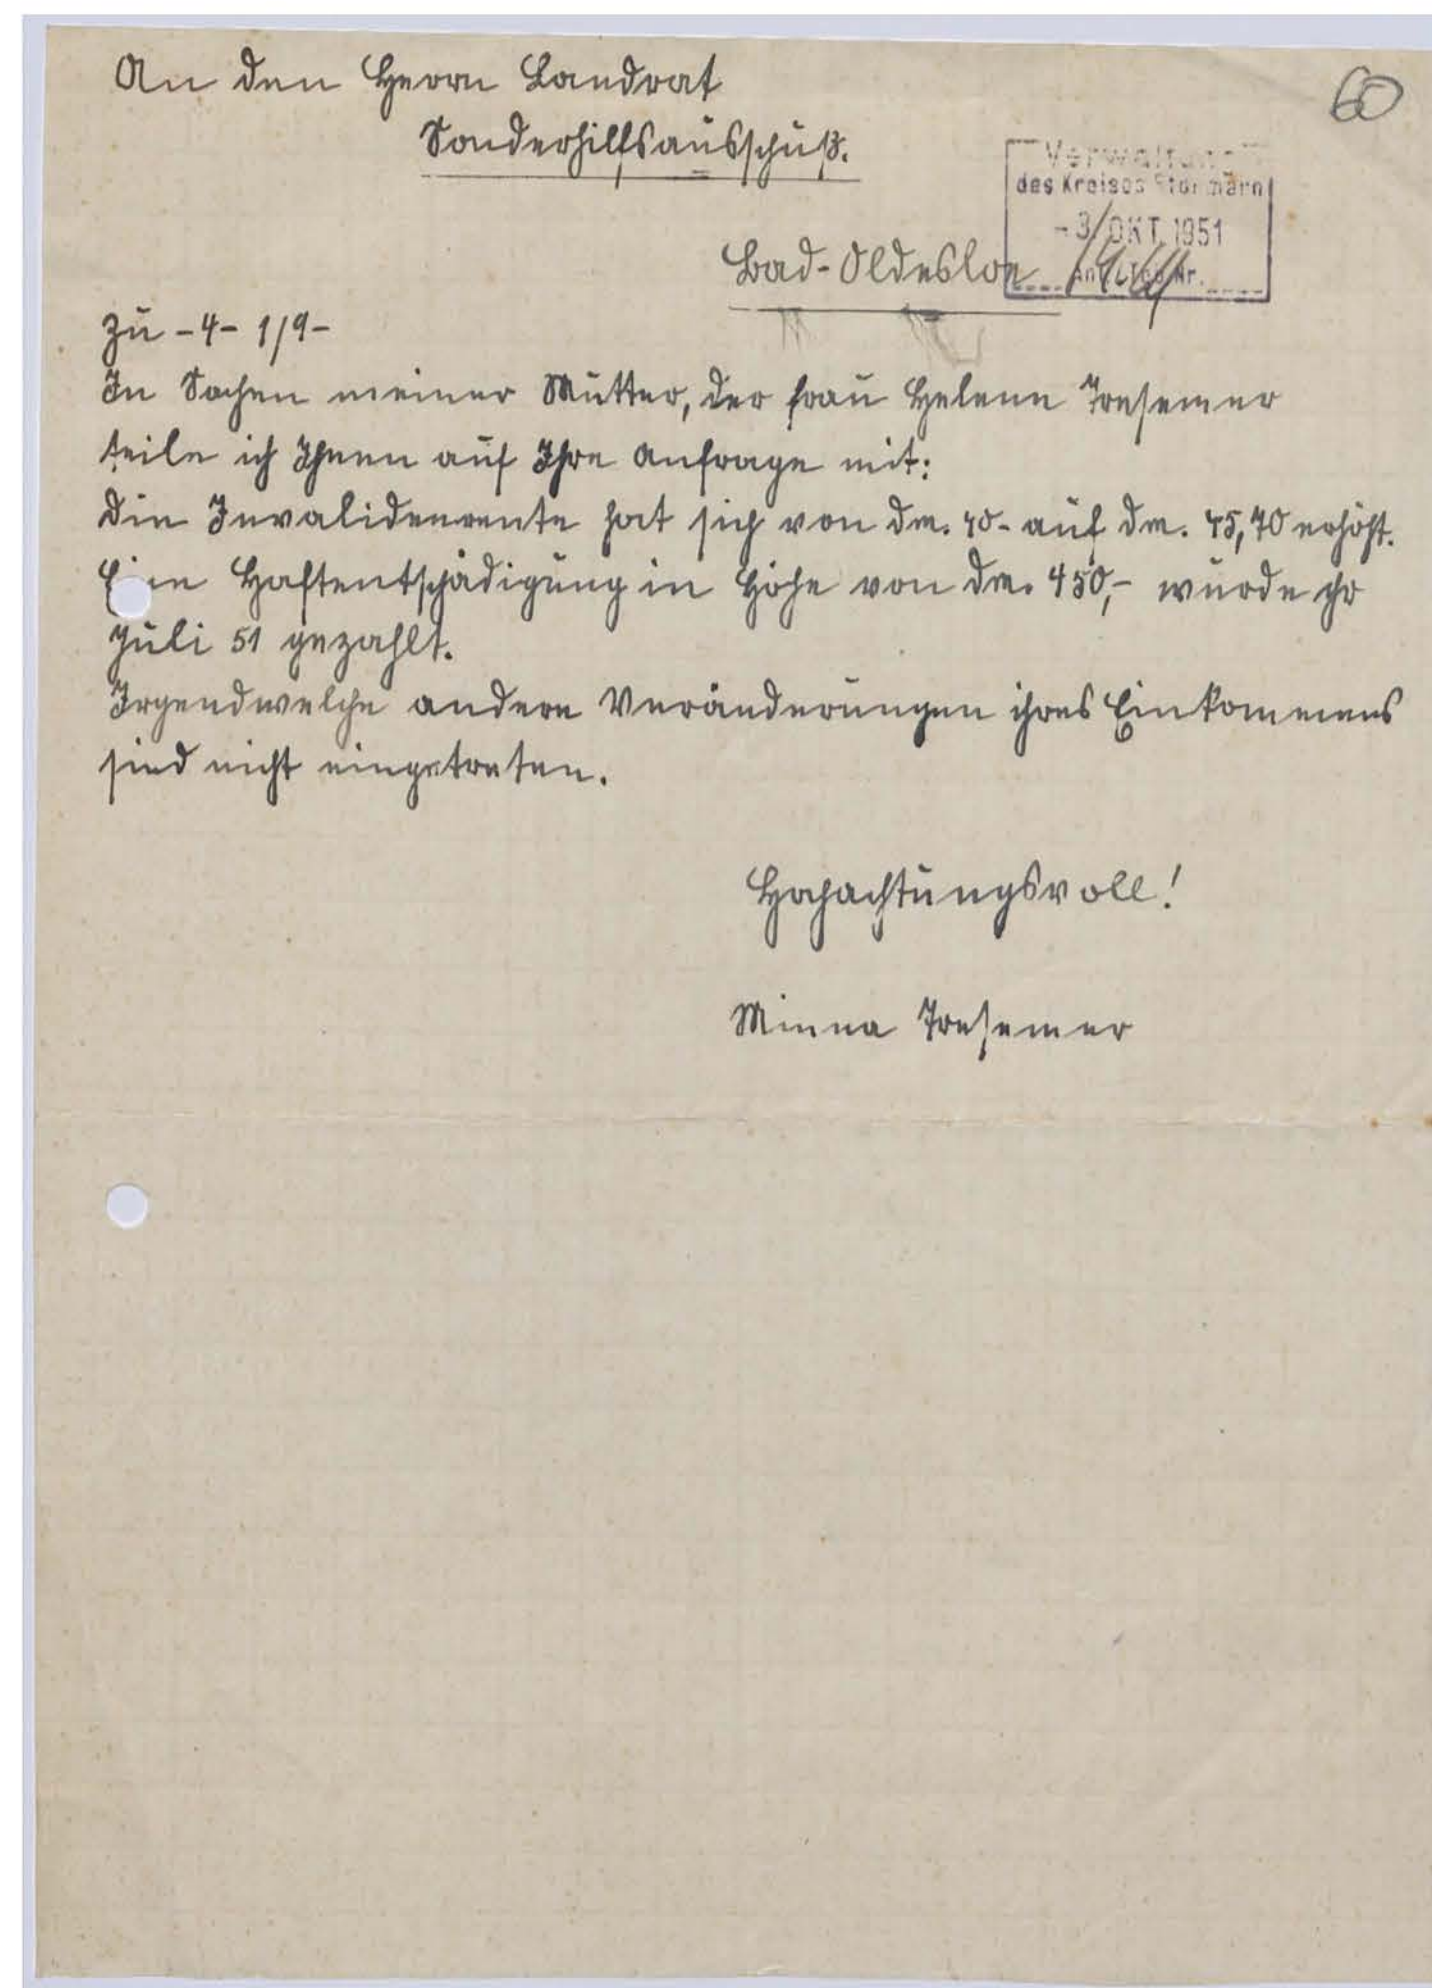 An den Herrn Landrat
60
Sonderhilfsausschuß.
Verwaltung
des Kreises Stormarn
-3. OKT. 1951
Bad-Oldesloe
Zu -4- 1/9-
In Sachen meiner Mutter, der Frau Helene Tresemer
teile ich Ihnen auf Ihre Anfrage mit:
Die Invalidenrente hat sich von Dm. 40- auf Dm. 45,70 erhöht.
Eine Haftentschädigung in Höhe von Dm. 450,- wurde ihr
Juli 51 gezahlt.
Irgendwelche andere Veränderungen ihres Einkommens
sind nicht eingetreten.
Hochachtungsvoll!
Minna Tresemer